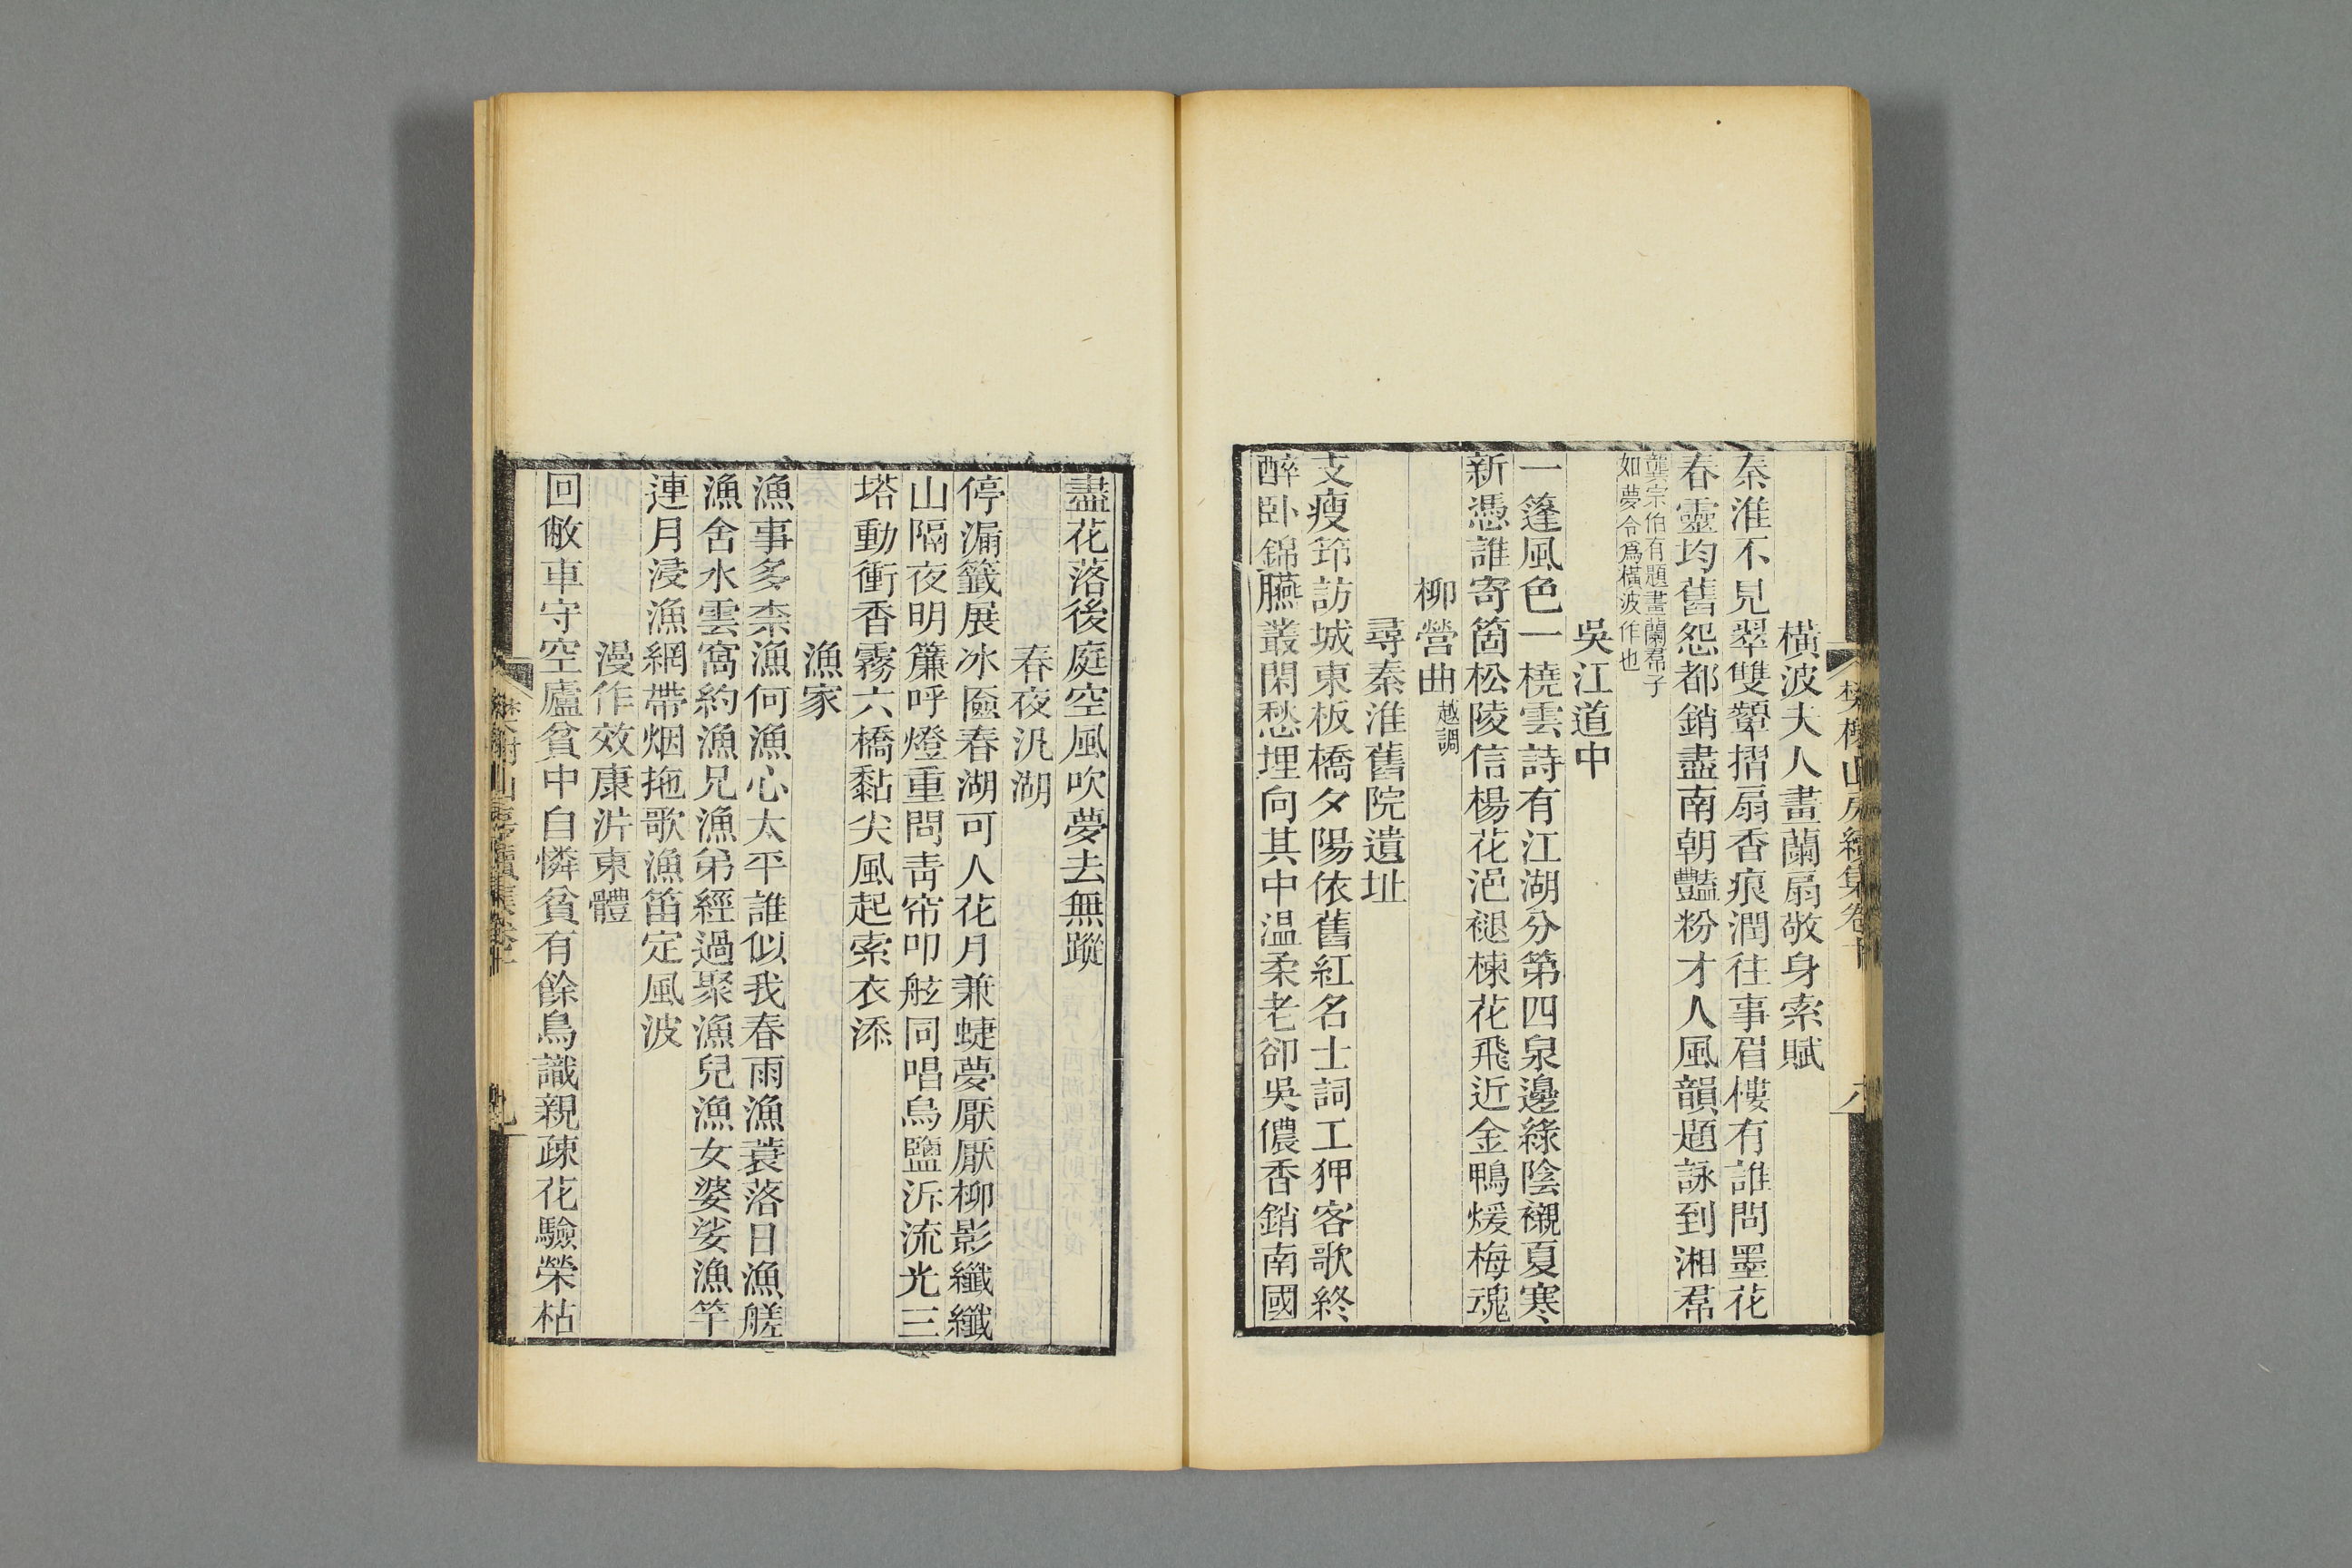 橫波夫人畫蘭扇敬身索賦
秦淮不見翠雙顰摺扇香痕潤往事眉樓有誰問墨花
春靈均舊怨都銷盡南朝豔粉才人風韻題詠到湘帬
龔宗伯有題畫蘭帬子
如夢令爲橫波作也
吳江道中
一篷風色一橈雲詩有江湖分第四泉邊綠陰襯夏寒
新憑誰寄箇松陵信楊花浥褪楝花飛近金鴨煖梅魂
柳營曲越調
尋秦淮舊院遺址
支瘦筇訪城東板橋夕陽依舊紅名士詞工狎客歌終
醉臥錦臙叢閑愁埋向其中温柔老卻吳儂香銷南國
盡花落後庭空風吹夢去無蹤
春夜汎湖
停漏籤展冰匳春湖可人花月兼蜨夢厭厭柳影纖纖
山隔夜明簾呼燈重問靑帘叩舷同唱烏鹽泝流光三
塔動衝香霧六橋黏尖風起索衣添
漁家
漁事多柰漁何漁心太平誰似我春雨漁蓑落日漁艖
漁舍水雲窩約漁兄漁弟經過聚漁兒漁女婆娑漁竿
連月浸漁網帶烟拖歌漁笛定風波
漫作效康沜東體
回敝車守空廬貧中自憐貧有餘鳥識親疎花驗榮枯